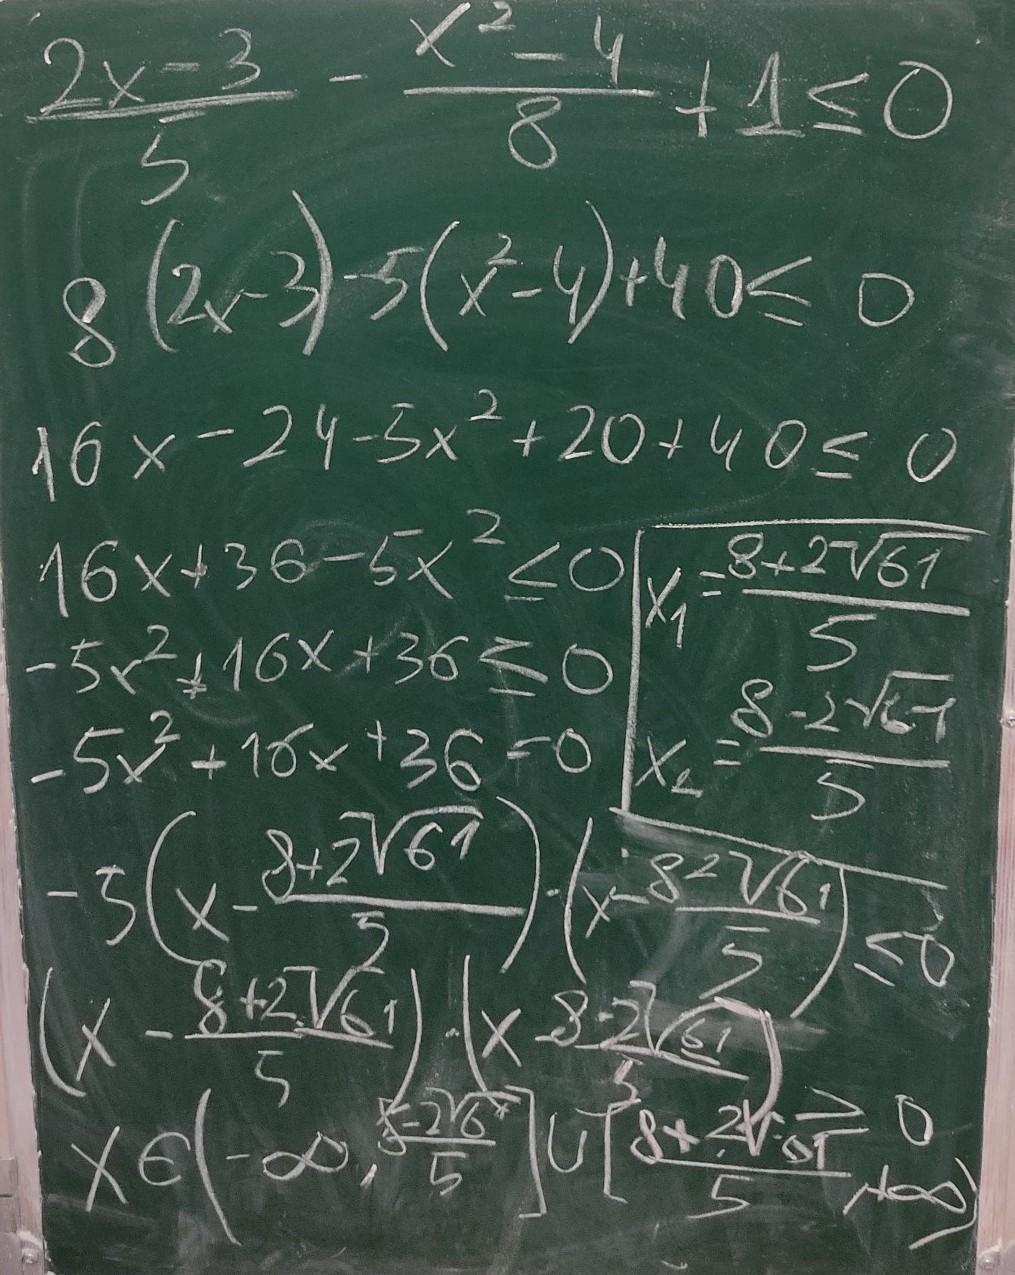 (2x-3)/5 - (x²-4)/8 + 1 ≤ 0
8(2x-3)-5(x²-4)+40 ≤ 0
16x-24-5x²+20+40 ≤ 0
16x+36-5x² ≤ 0
x₁ = (8+2√61)/5
-5x²+16x+36 ≤ 0
x₂ = (8-2√61)/5
-5x²+16x+36=0
-5(x-(8+2√61)/5)·(x-(8-2√61)/5) ≤ 0
(x-(8+2√61)/5)·(x-(8-2√61)/5) ≥ 0
x∈(-∞, (8-2√61)/5]∪[(8+2√61)/5, +∞)